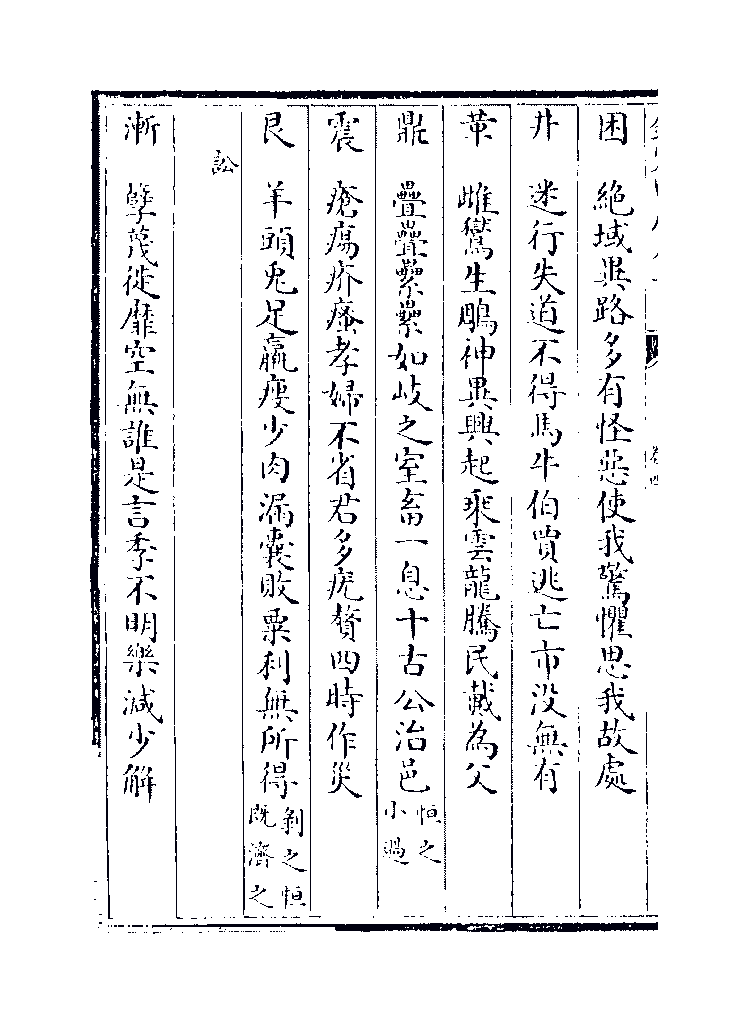 困　絶域異路多有怪惡使我驚懼思我故處
井　迷行失道不得馬牛伯賈逃亡市没無有
革　雌鸑生鵰神異興起乘雲龍騰民戴為父
鼎　疊疊纍纍如岐之室畜一息十古公治邑恒之小過
震　瘡瘍疥瘙孝婦不省君多疣贅四時作災
艮　羊頭兎足羸瘦少肉漏囊敗粟利無所得剝之恒既濟之
訟
漸　孽蔑徙靡空無誰是言季不明樂減少解